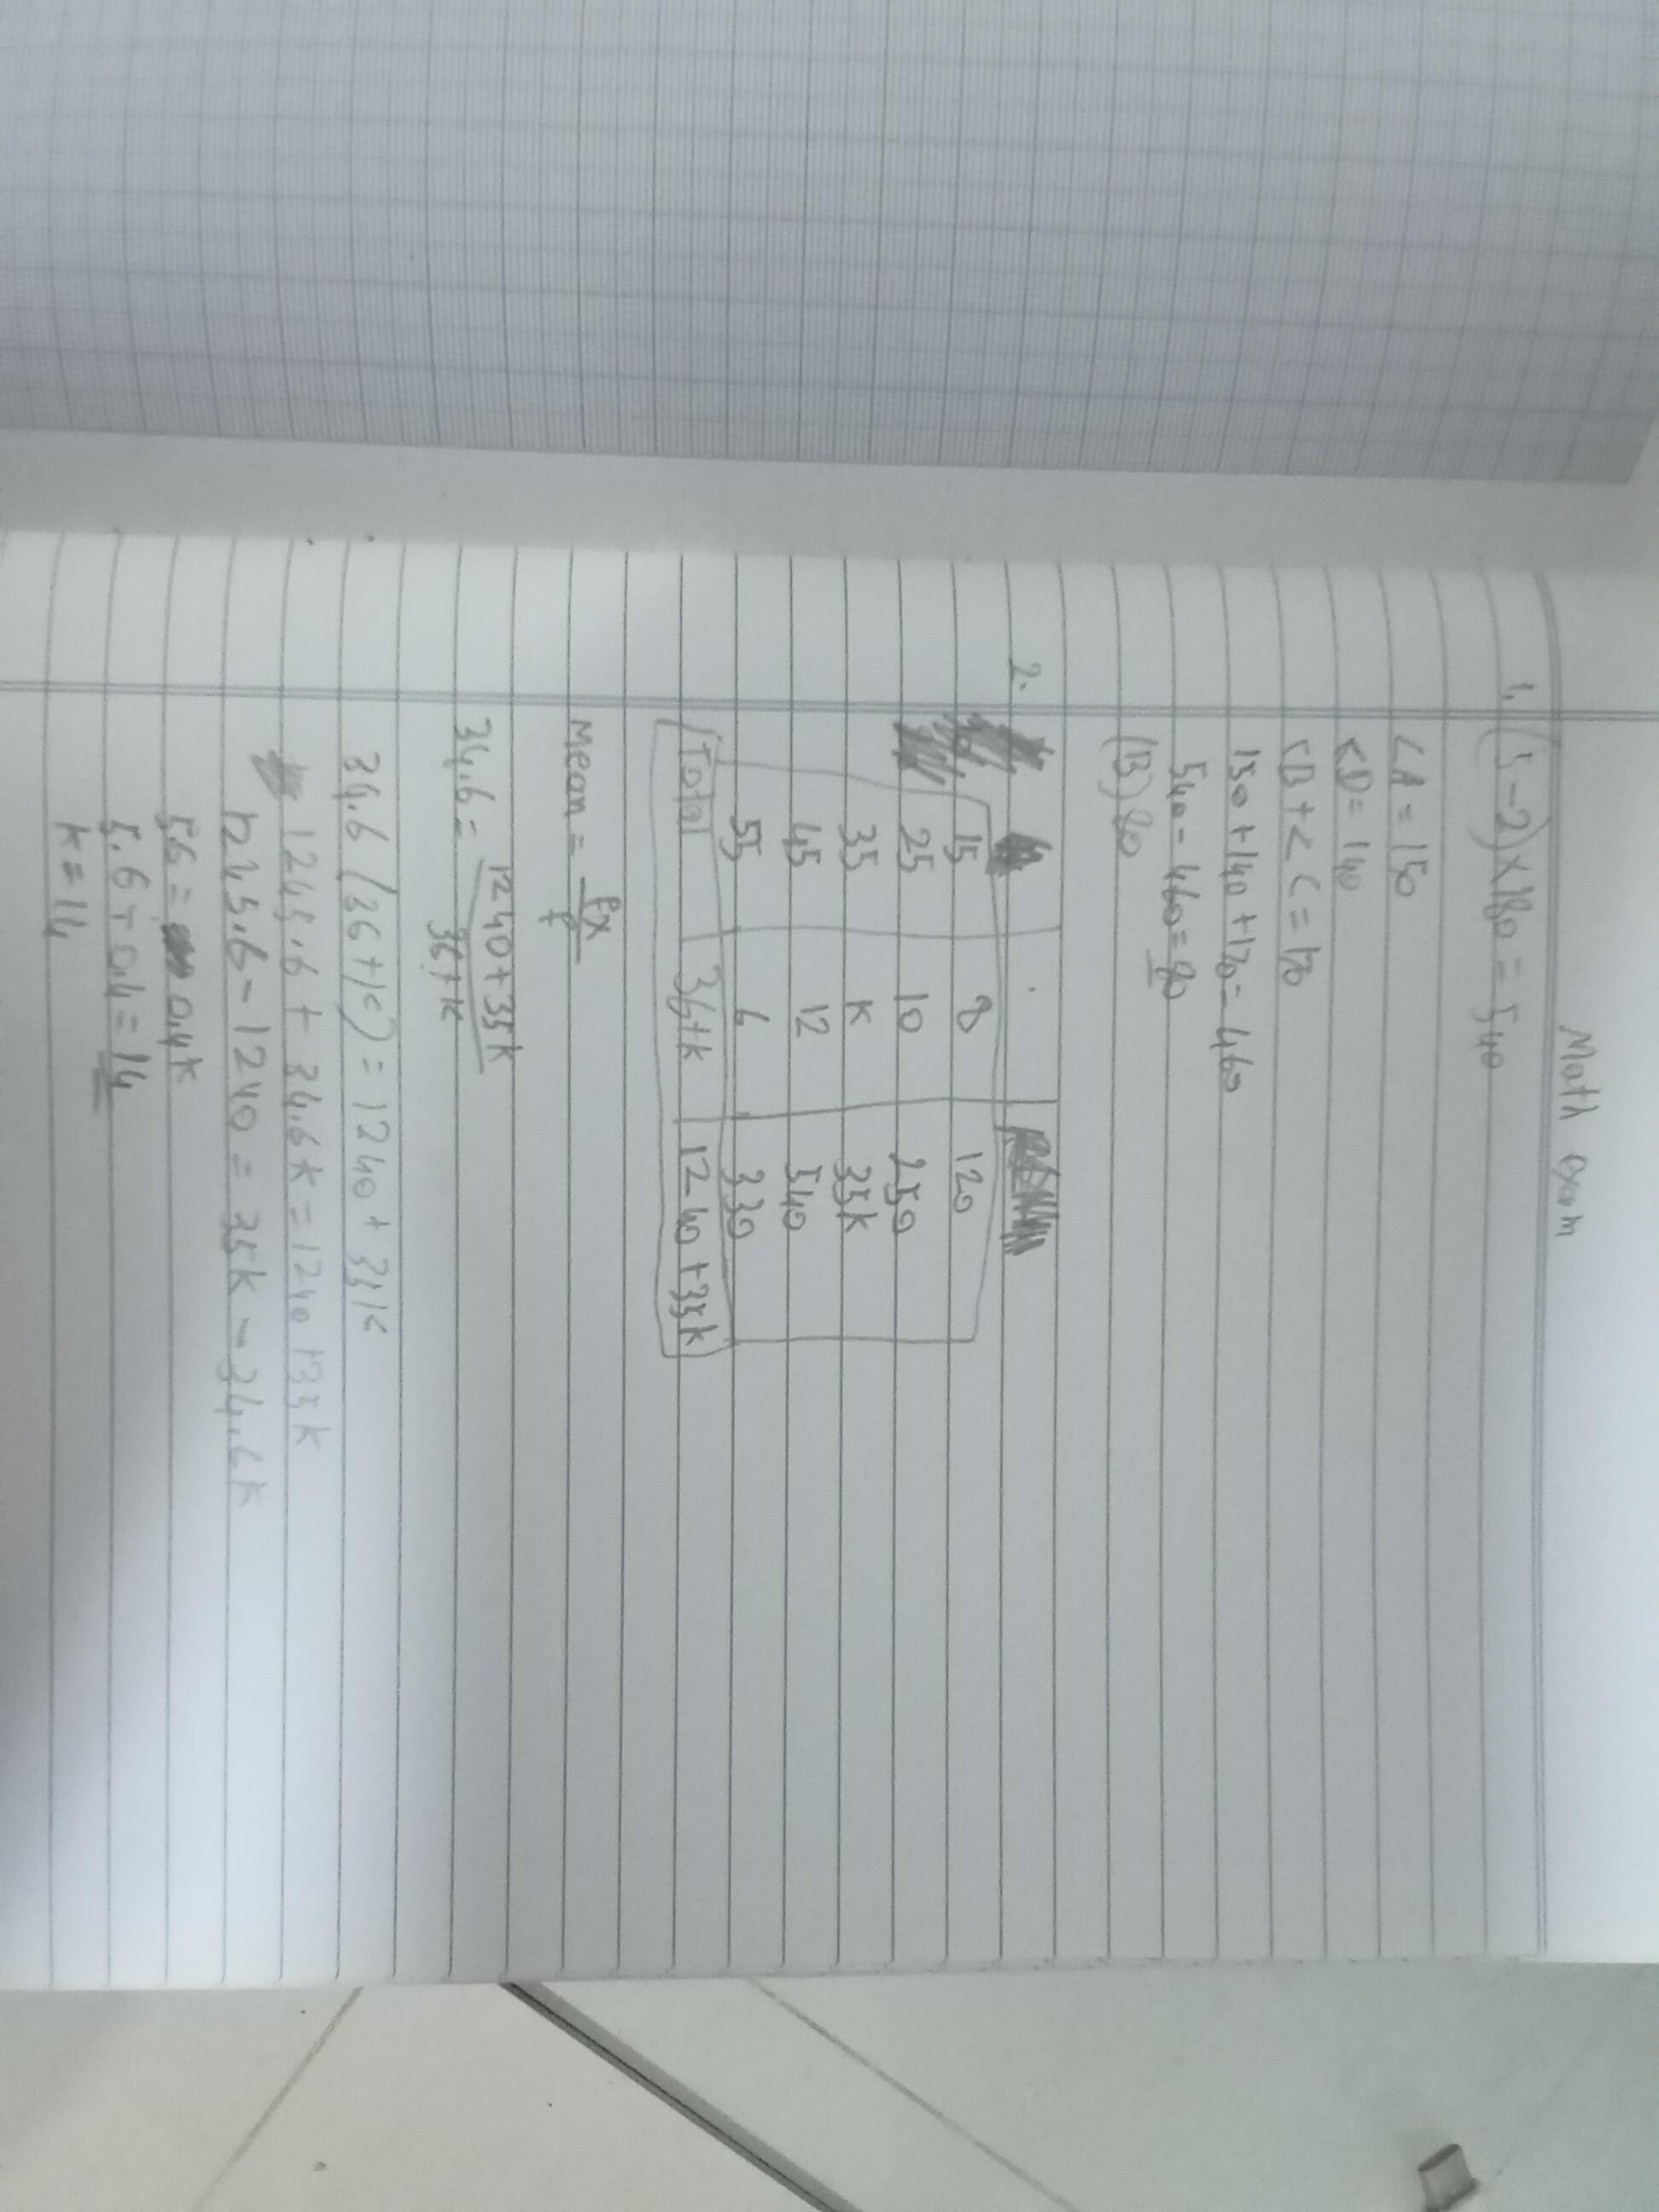 Math exam
1. (5-2)×180 = 540
<A = 150
<D = 140
<B + < C = 170
150 + 140 + 170 = 460
540 - 460 = 80
(B) 80
2.
15 8 120
25 10 250
35 K 35K
45 12 540
55 6 330
Total 36+K 1240+35K
Mean = fx/f
34.6 = 1240+35K/36+K
34.6 (36+K) = 1240 + 35K
1245.6 + 34.6K = 1240+35K
1245.6 - 1240 = 35K - 34.6K
5.6 = 0.4K
5.6 ÷ 0.4 = 14
K = 14